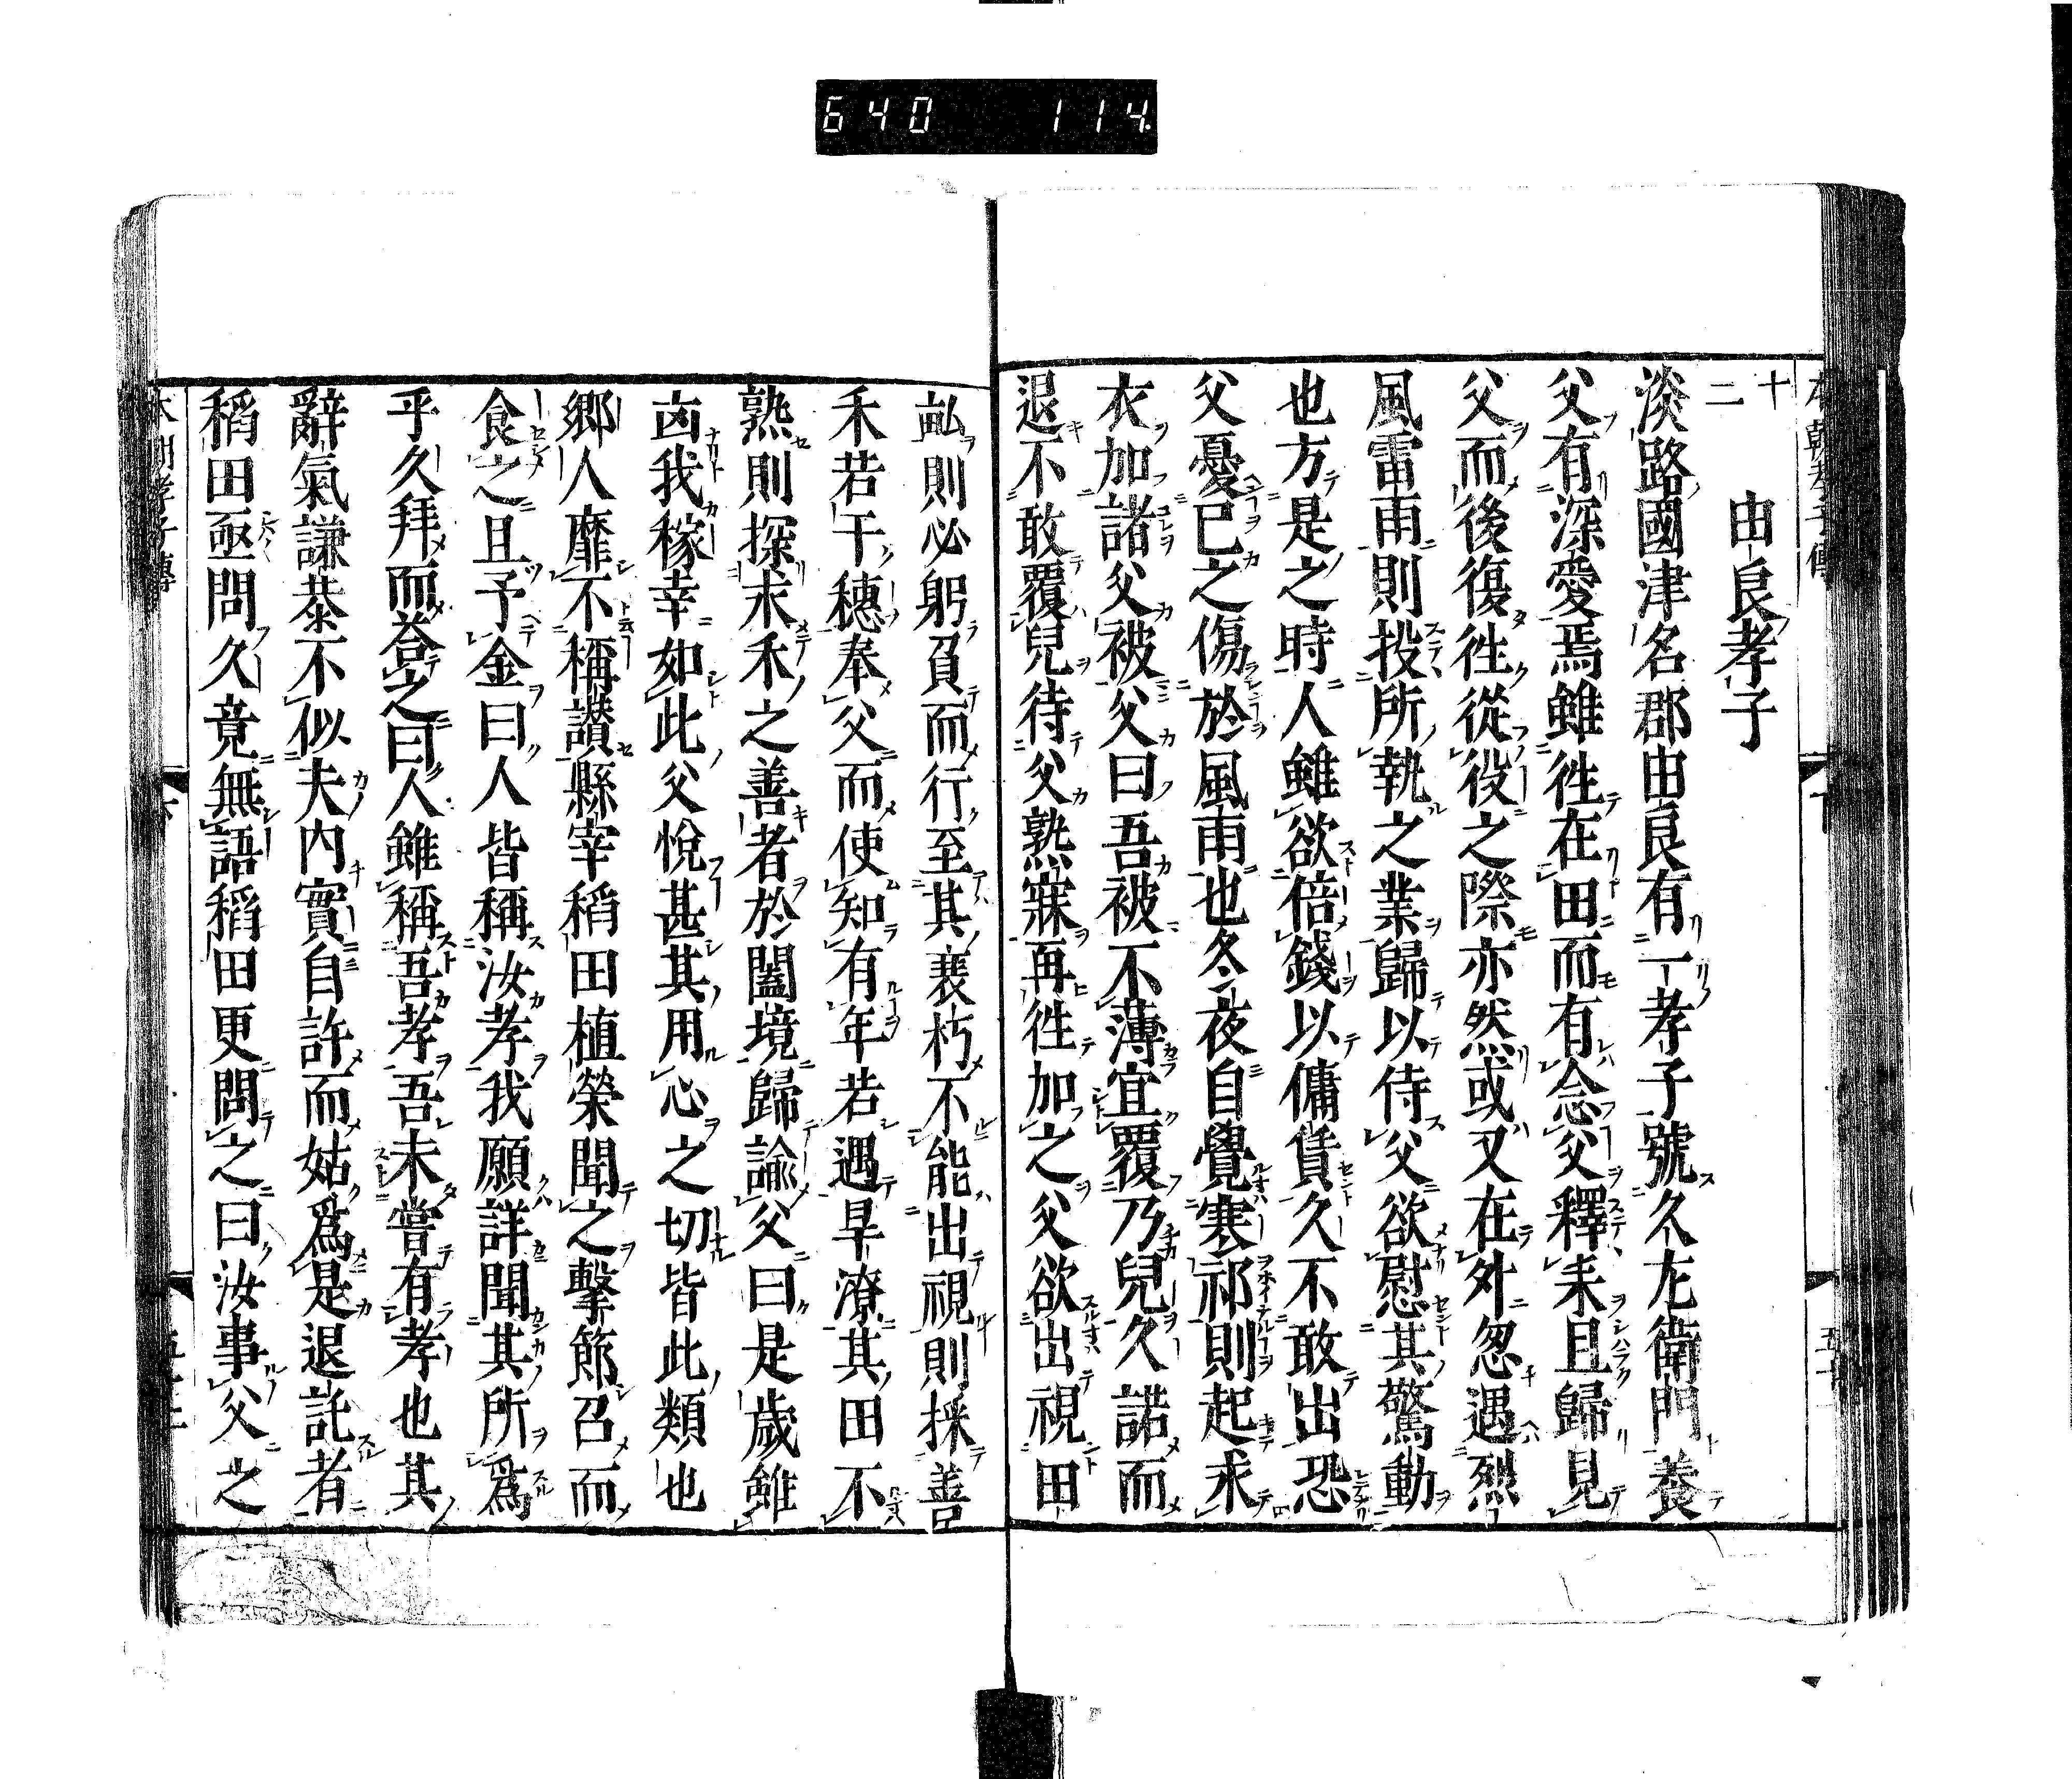 640 114
十二 由良孝子
淡路國津名郡由良有一孝子號久左衛門養
父有深愛焉雖徃在田而有念父釋耒且歸見
父而後復徃從役之際亦然或又在外忽遇烈
風雷雨則投所執之業歸以侍父欲慰其驚動
也方是之時人雖欲倍錢以傭賃久不敢出恐
父憂已之傷於風雨也冬夜自覺寒祁則起求
衣加諸父被父曰吾被不薄宜覆乃兒久諾而
退不敢覆兒待父熟寐再徃加之父欲出視田
畆則必躬負而行至其衰朽不能出視則採善
禾若干穗奉父而使知有年若遇旱潦其田不
熟則探求禾之善者於闔境歸諭父曰是歲雖
凶我稼幸如此父悅甚其用心之切皆此類也
郷人靡不稱讃縣宰稻田植榮聞之擊節召而
食之且予金曰人皆稱汝孝我願詳聞其所爲
乎久拜而荅之曰人雖稱吾孝吾未嘗有孝也其
辭氣謙恭不似夫內實自許而姑爲是退託者
稻田亟問久竟無語稻田更問之曰汝事父之